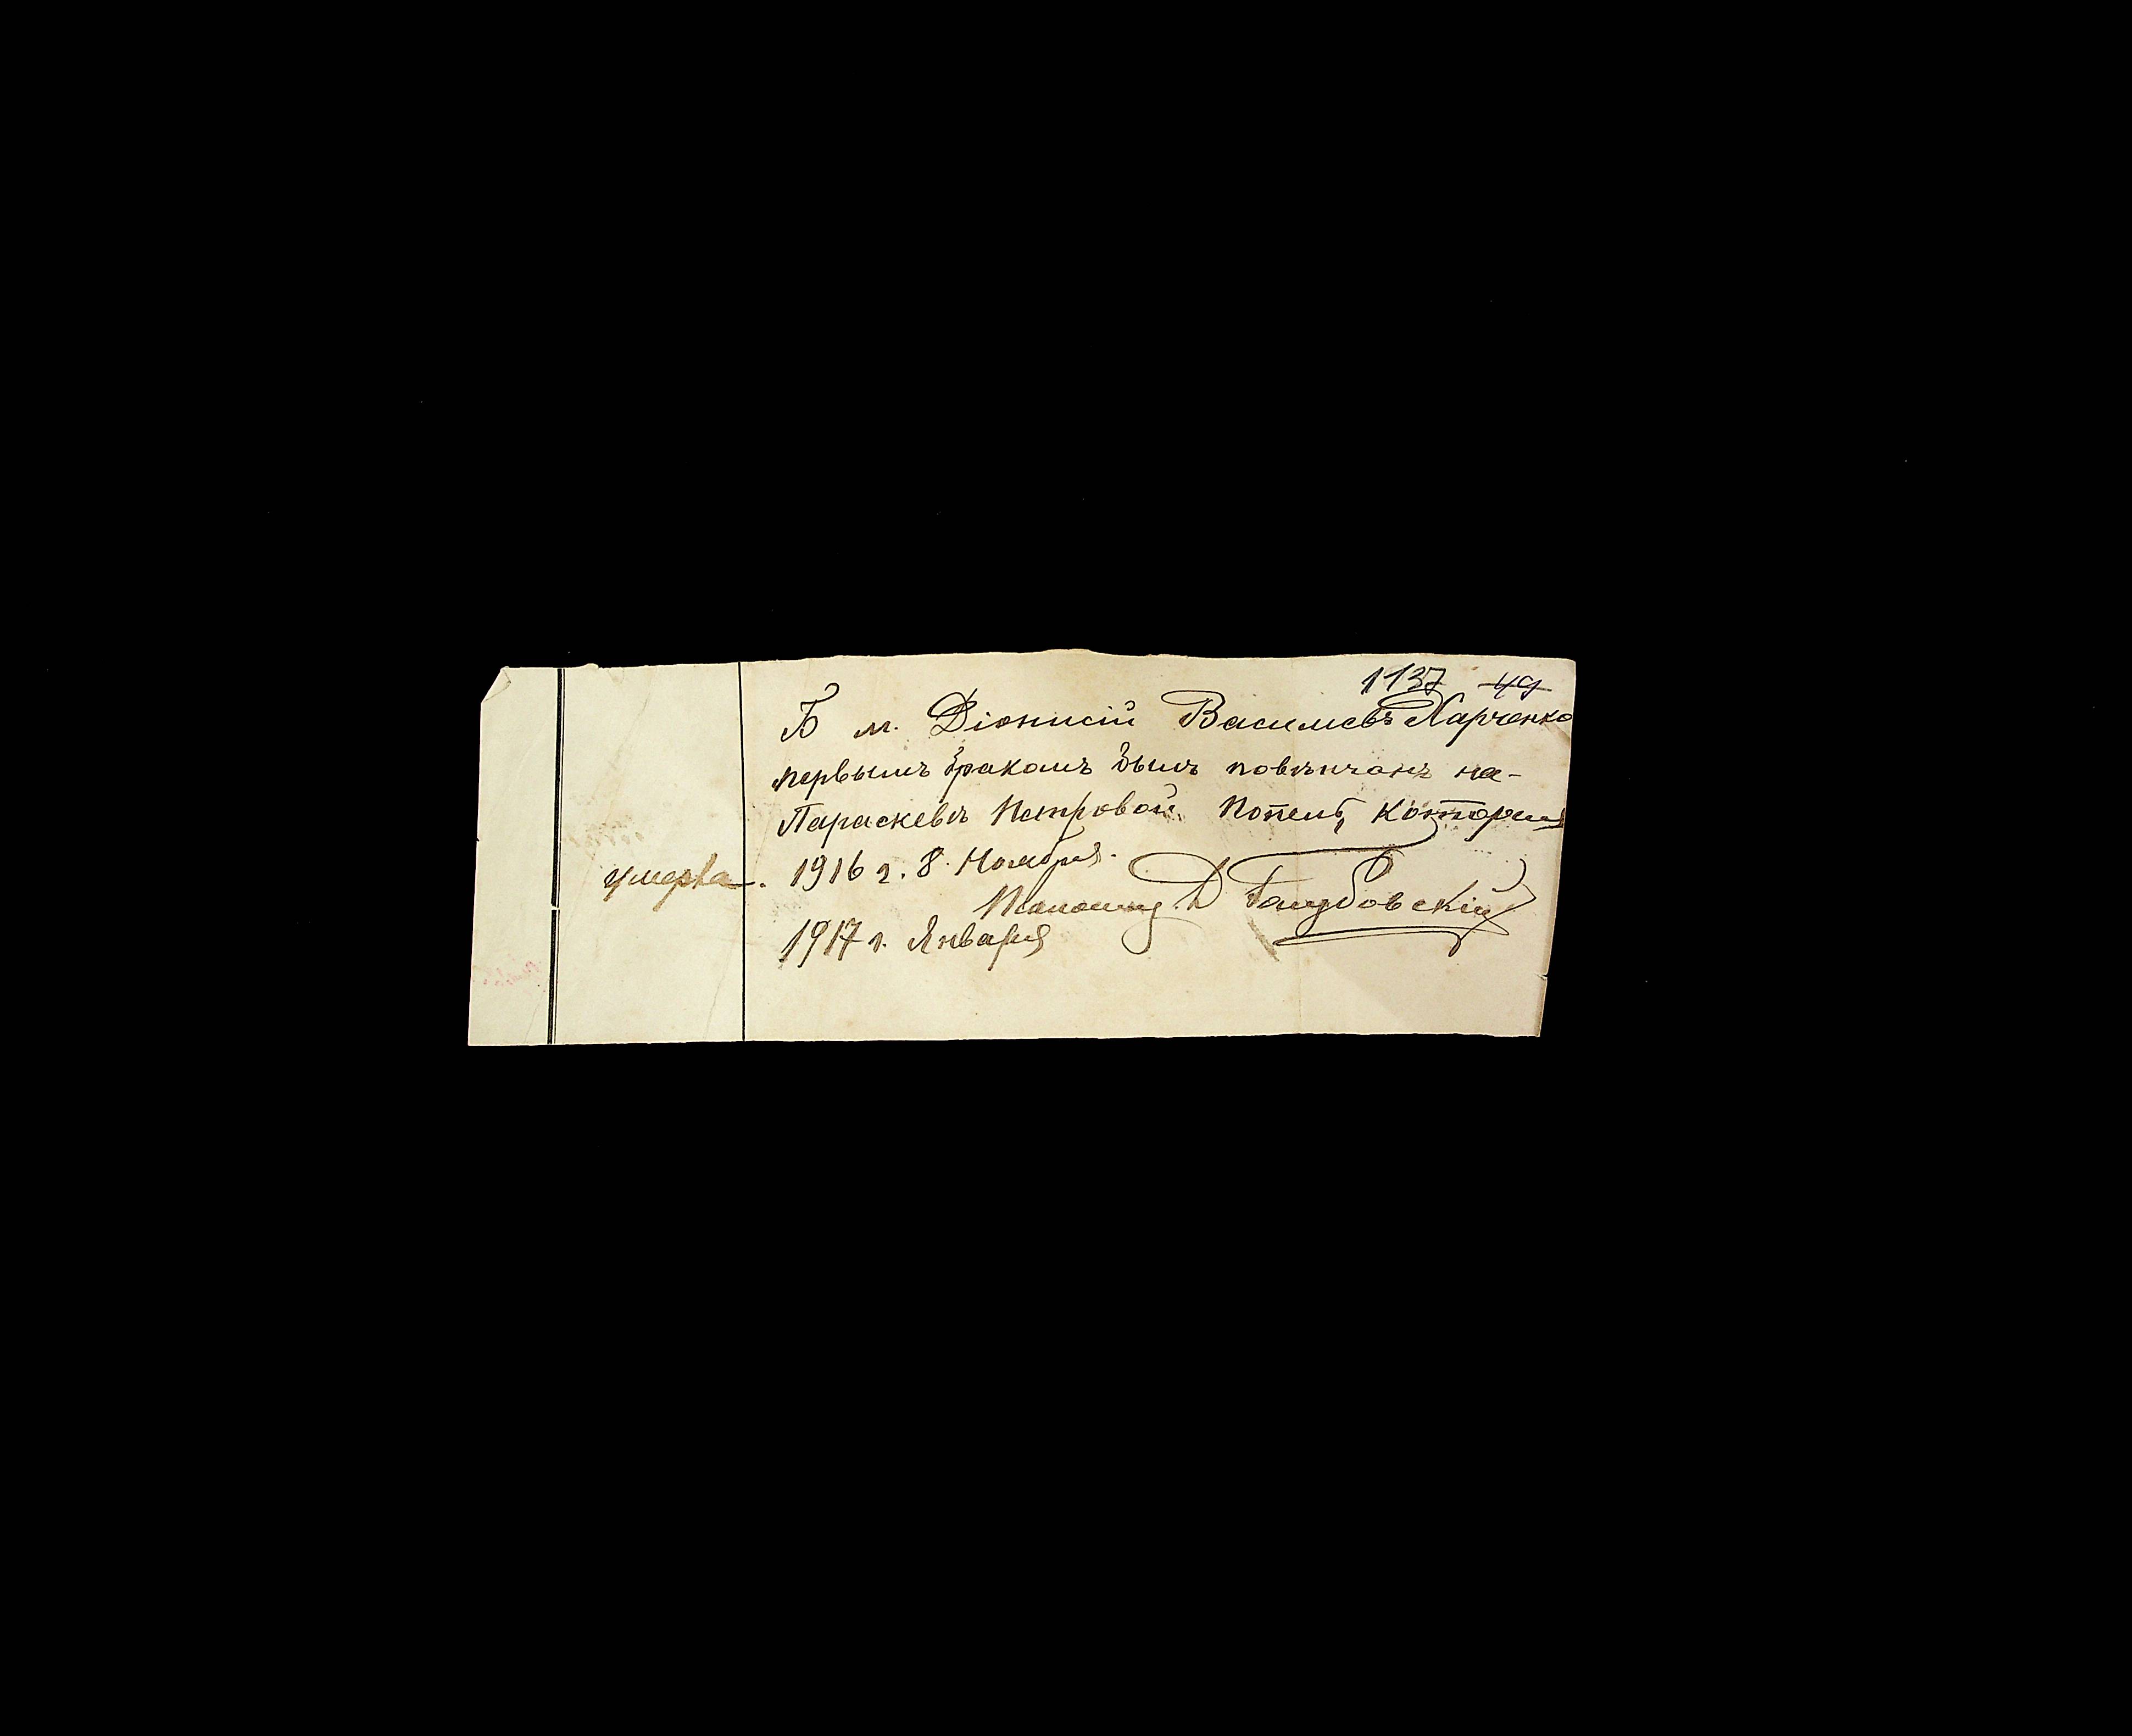 1137 49
Б м. Діонисій Василіевъ Харченко
первымъ бракомъ былъ повѣнчанъ на-
Параскевѣ Петровой Попель, которая
умерла. 1916 г. 8 Ноября.
Псаломщ. Д Голубовскій
1917 г. Января